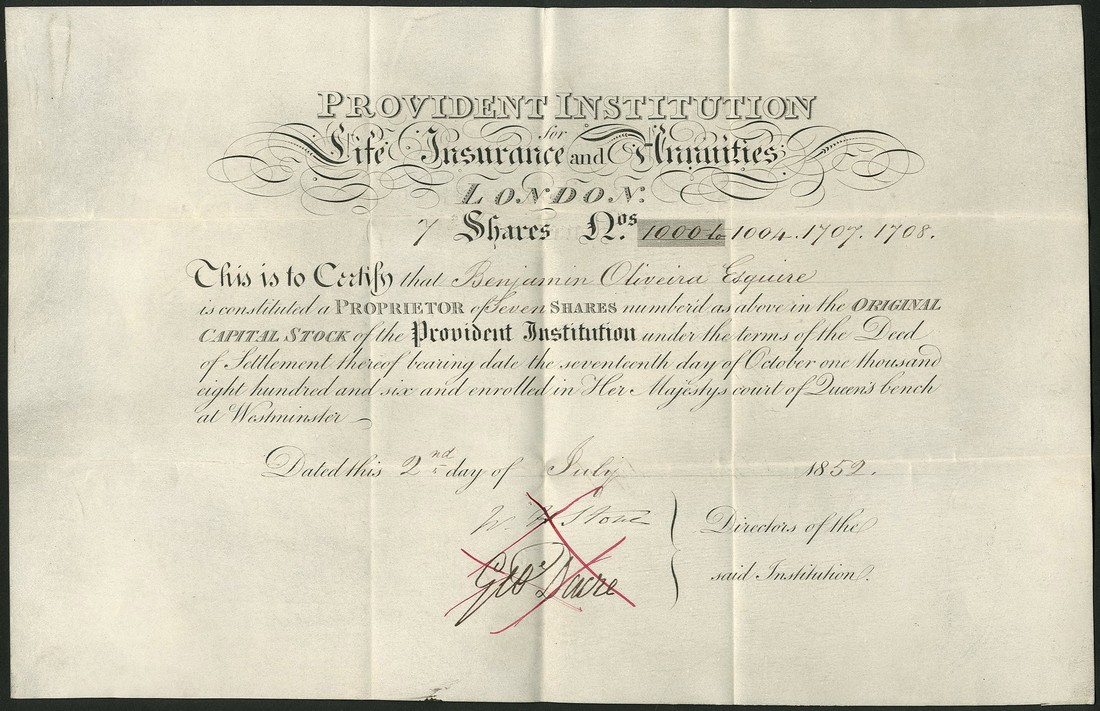 PROVIDENT INSTITUTION
for
Life Insurance and Annuities
LONDON.
7 Shares Nos. 1000 to 1004. 1707. 1708.
This is to Certify that Benjamin Oliveira Esquire
is constituted a PROPRIETOR of Seven SHARES number'd as above in the ORIGINAL
CAPITAL STOCK of the Provident Institution under the terms of the Deed
of Settlement thereof bearing date the seventeenth day of October one thousand
eight hundred and six and enrolled in Her Majestys court of Queen's bench
at Westminster
Dated this 2nd day of July 1852.
W. H Stone
Geoe Dacre
Directors of the
said Institution.